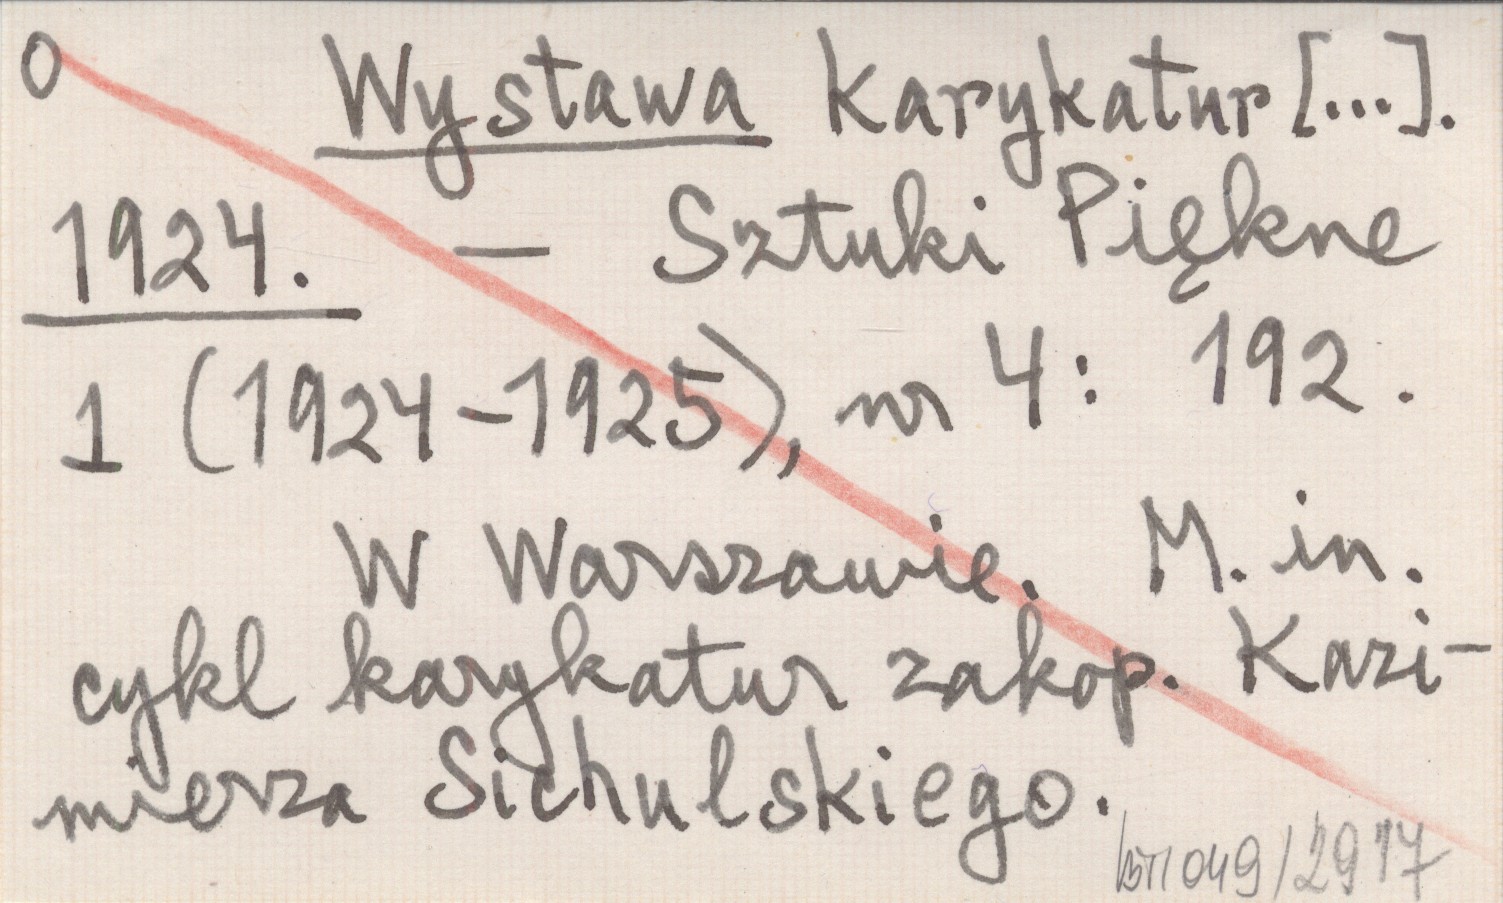 O Wystawa karykatur [...].
1924. — Sztuki Piękne
1 (1924-1925), nr 4: 192.
W Warszawie. M. in.
cykl karykatur zakop. Kazi-
mierza Sichulskiego.
049/2917